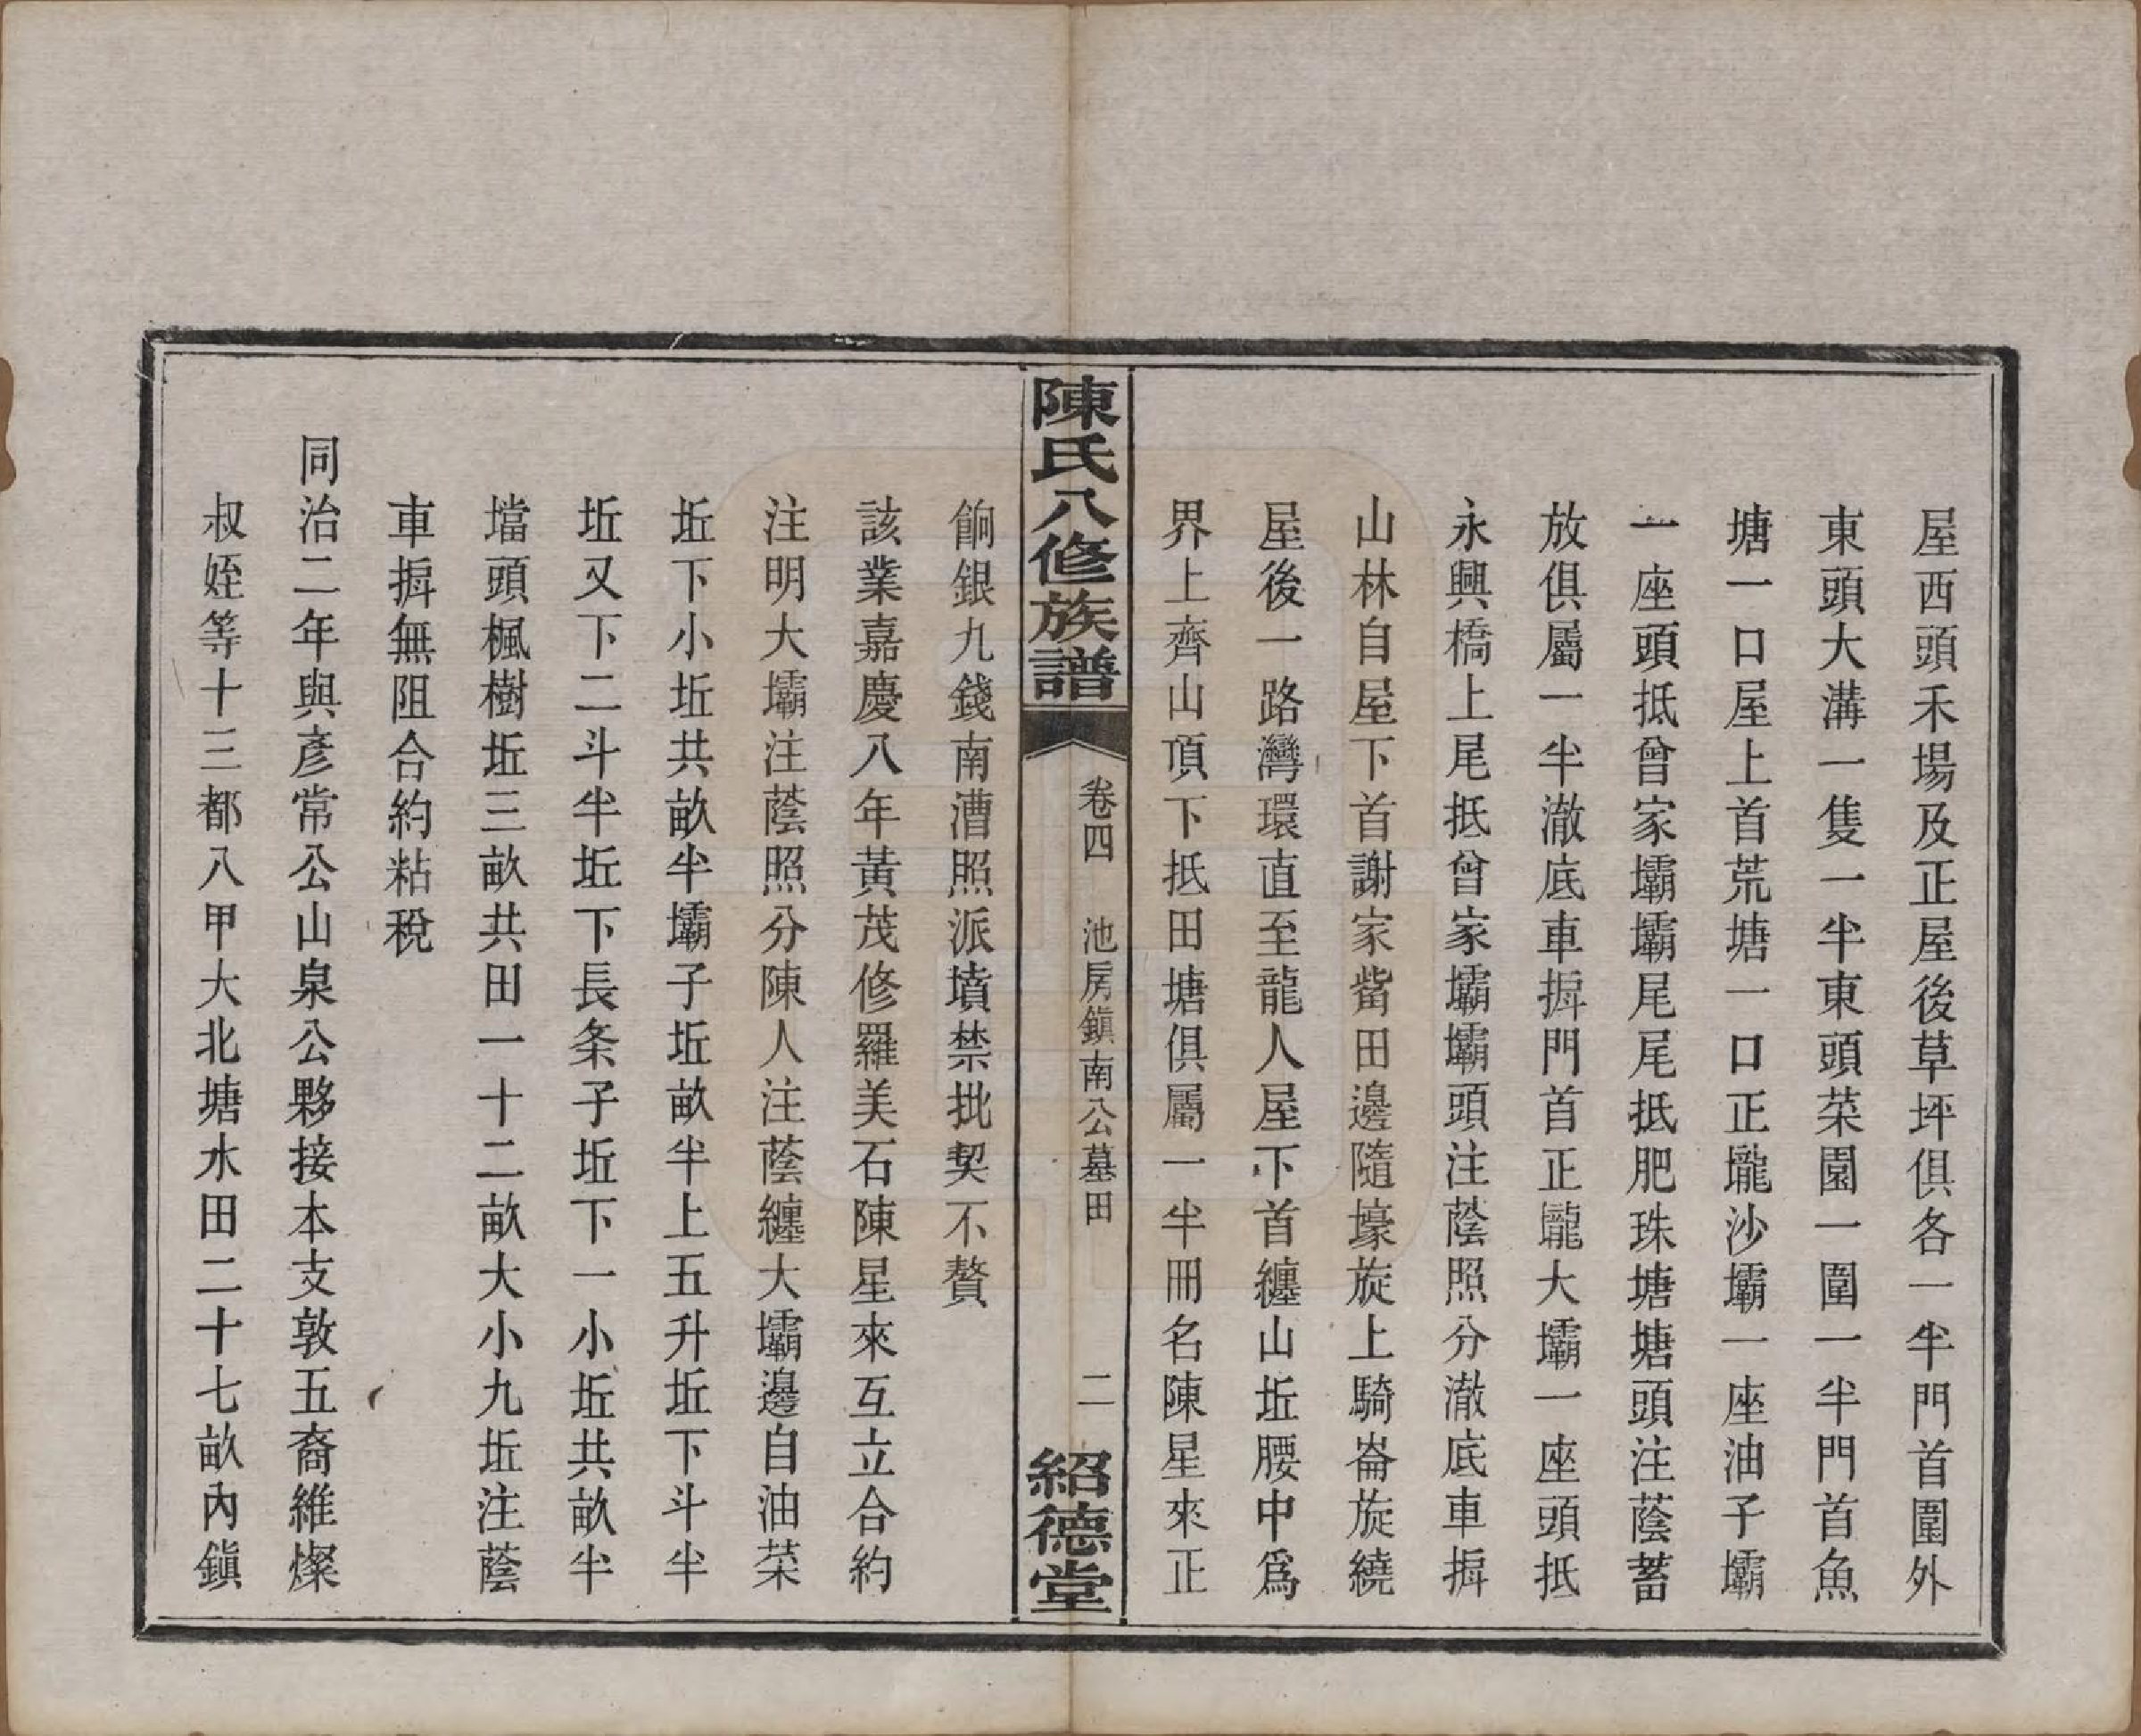 屋西頭禾場及正屋後草坪俱各一半門首圍外
東頭大溝一隻一半東頭菜園一圍一半門首魚
塘一口屋上首荒塘一口正壠沙壩一座油子壩
一座頭抵曾家壩壩尾尾抵肥珠塘塘頭注蔭蓄
放俱屬一半澈底車搙門首正壠大壩一座頭抵
永興橋上尾抵曾家壩壩頭注蔭照分澈底車搙
山林自屋下首謝家背田邊隨壕旋上騎崙旋繞
屋後一路灣環直至龍人屋下首纏山坵腰中爲
界上齊山頂下抵田塘俱屬一半冊名陳星來正
陳氏八修族譜
卷四
池房鎮南公墓田
二
紹德堂
餉銀九錢南漕照派墳禁批契不贅
該業嘉慶八年黃茂修羅美石陳星來互立合約
注明大壩注蔭照分陳人注蔭纏大壩邊自油菜
坵下小坵共畝半壩子坵畝半上五升坵下斗半
坵又下二斗半坵下長条子坵下一小坵共畝半
壋頭楓樹坵三畝共田一十二畝大小九坵注蔭
車搙無阻合約粘稅
同治二年與彥常公山泉公夥接本支敦五裔維燦
叔姪等十三都八甲大北塘水田二十七畝內鎮